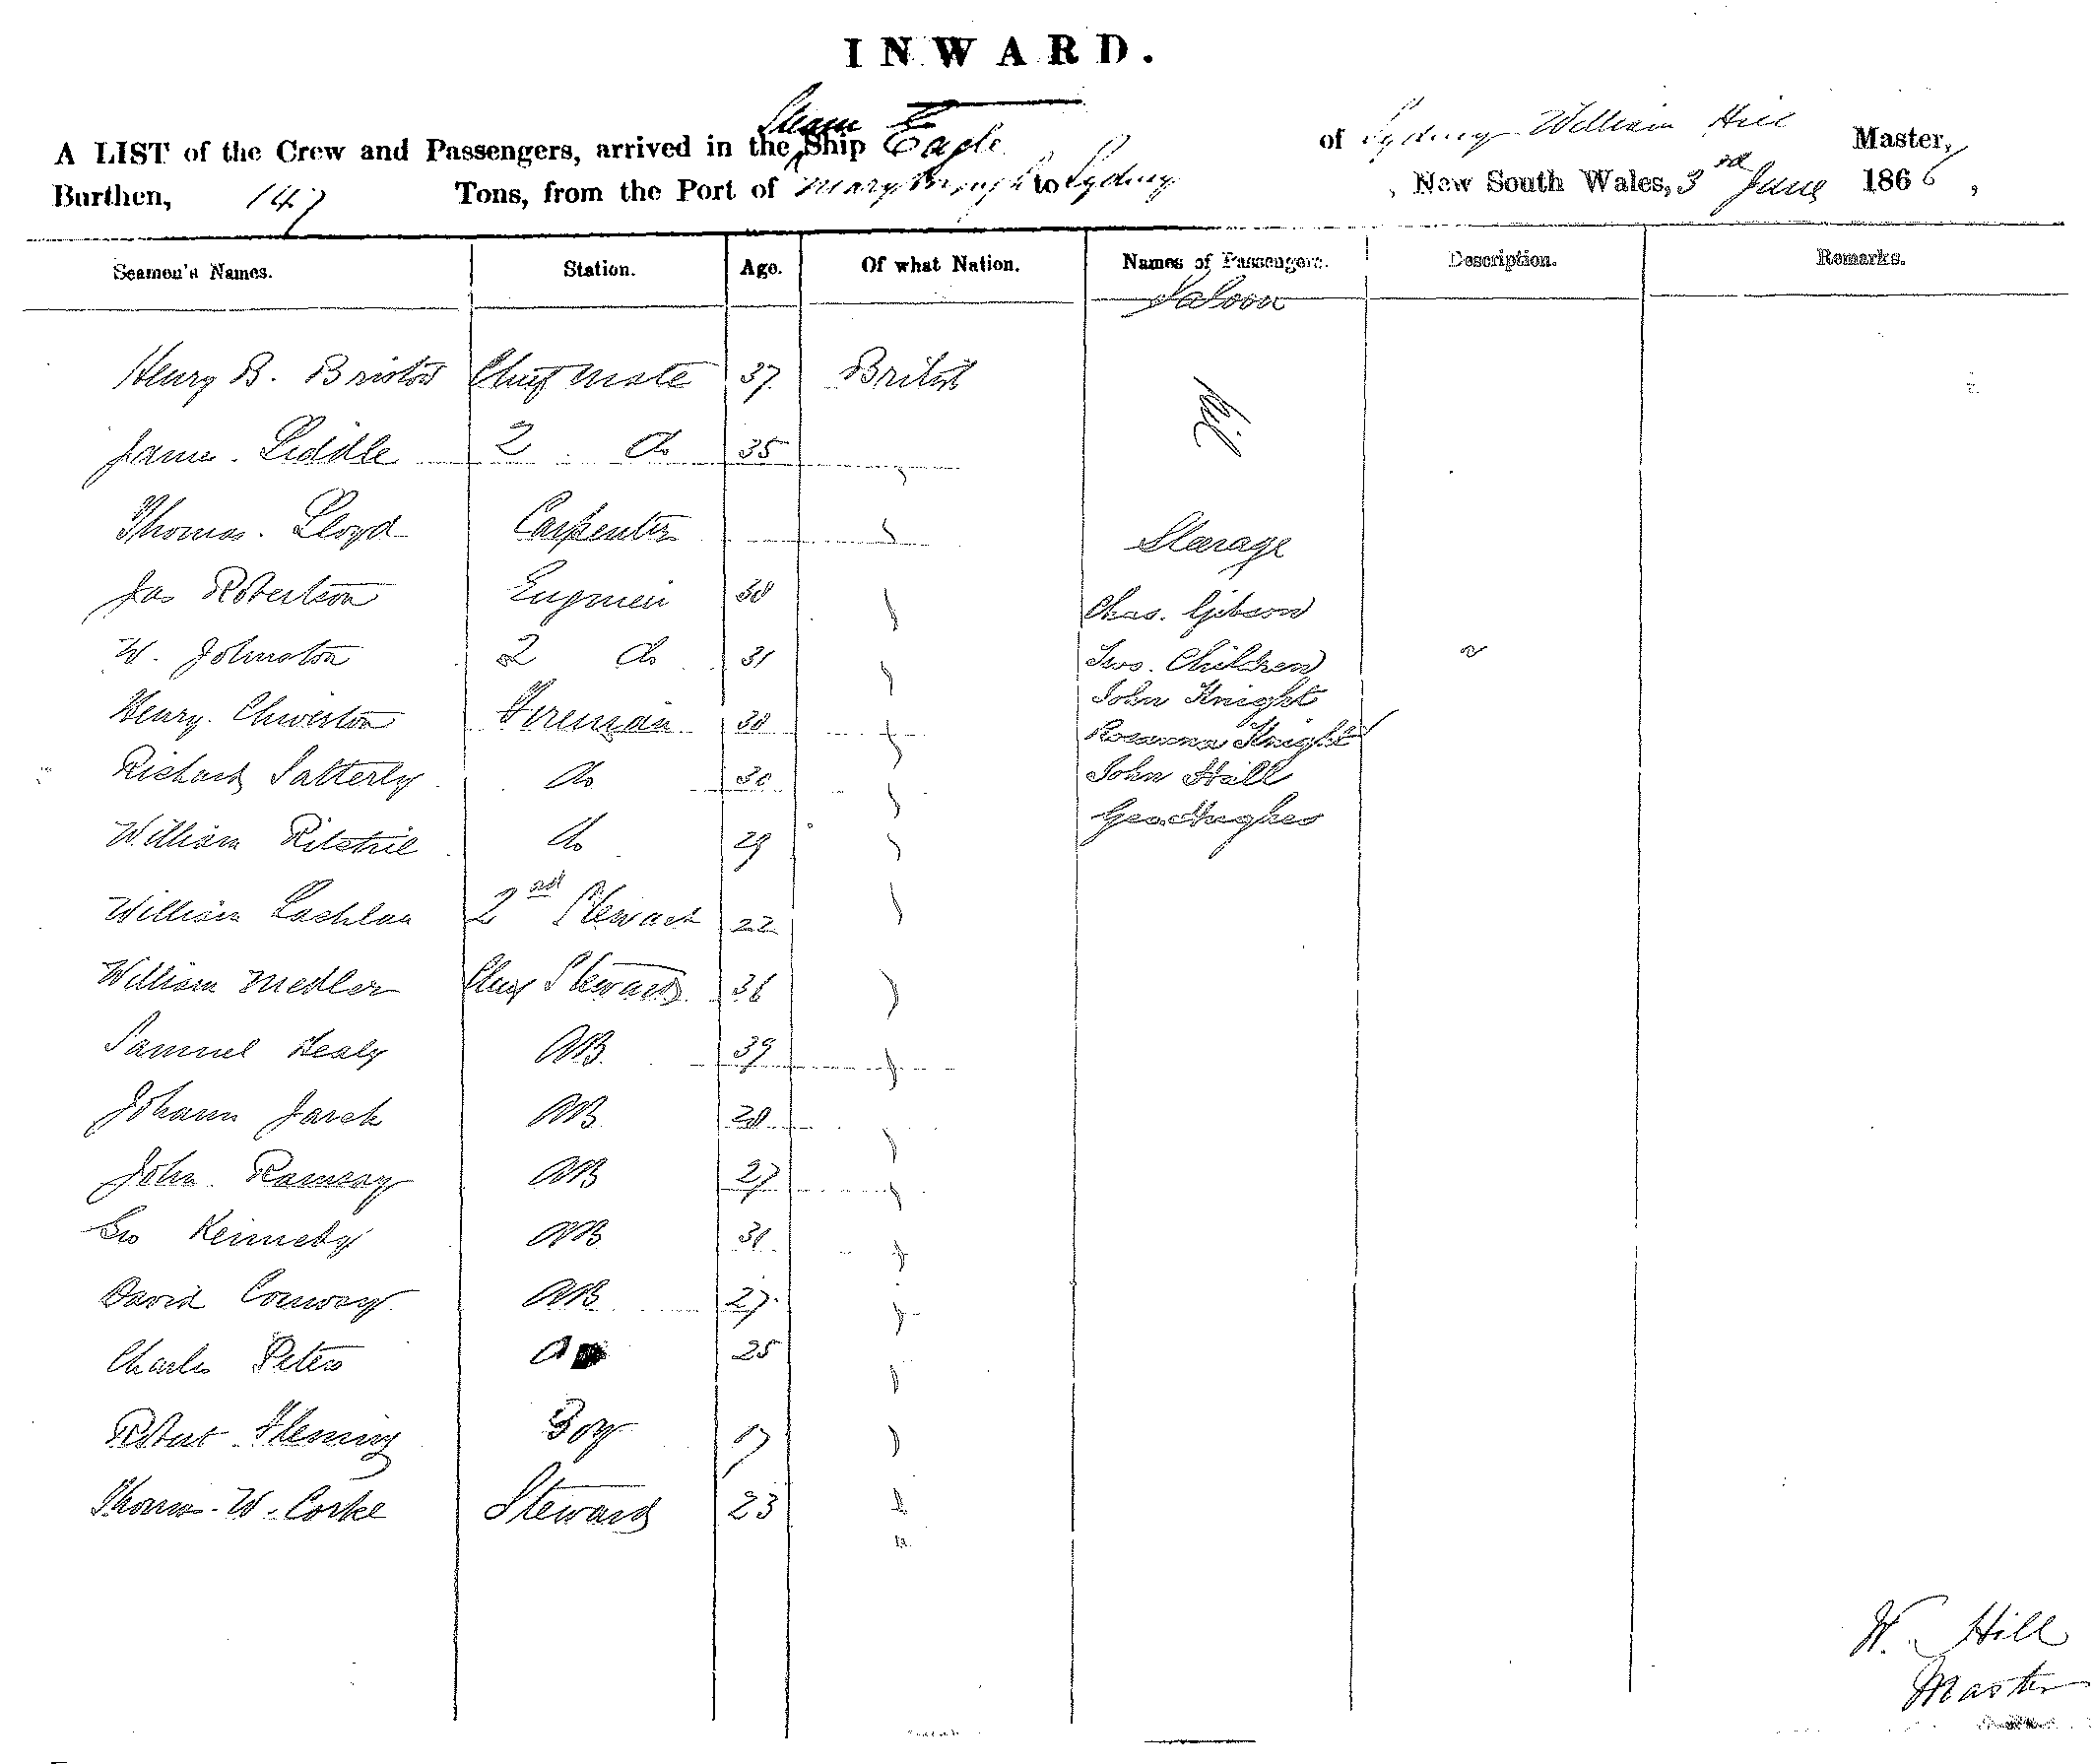 INWARD.
A LIST of the Crew and Passengers, arrived in the Steam Ship Eagle of Sydney William Hill Master,
Burthen, 147 Tons, from the Port of Maryborough to Sydney, New South Wales, 3rd June 1866,
Seamen's Names. Station. Age. Of what Nation. Names of Passengers. Description. Remarks.
Saloon
Henry B. Bristow Chief Mate 37 British
Nil
James Liddle 2 do 35 "
Thomas Lloyd Carpenter "
Stearage
Jas Robertson Engineer 30 " Chas. Gibson
W. Johnston 2 do 31 " Two Children
John Knight
Henry Chiverton Fireman 30 " Rosanna Knight
Richard Satterly do 30 " John Hall
William Ritchie do 29 " Geo. Hughes
William Lachlan 2nd Steward 22 "
William Medler Chief Steward 36 "
Samuel Healy AB 39 "
Johann Jarck AB "
John Ramsay AB 27 "
Geo Kennedy AB "
David Conway AB 27 "
Charles Peters 25 "
Robert Fleming Boy 17 "
Thomas W. Corke Steward 23 "
W. Hill
Master